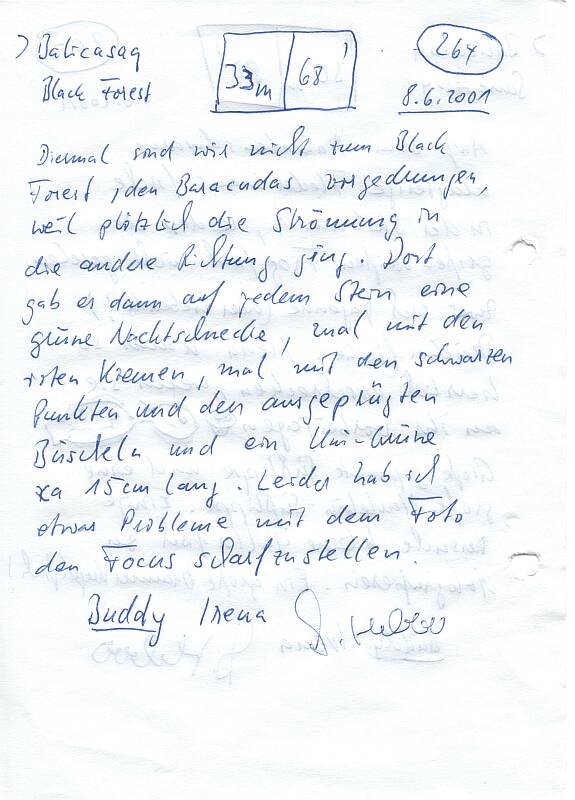 ) Balicasag
33m 68'
264
Black Forest
8.6.2001
Diesmal sind wir nicht zum Black
Forest, den Baracudas vorgedrungen,
weil plötzlich die Strömung in
die andere Richtung ging. Dort
gab es dann auf jedem Stein eine
grüne Nachtschnecke, mal mit den
roten Kiemen, mal mit den schwarzen
Punkten und den ausgeprägten
Büscheln und ein Uni-Grüne
ca 15cm lang. Leider hab ich
etwas Probleme mit dem Foto
den Focus scharfzustellen.
Buddy Irena